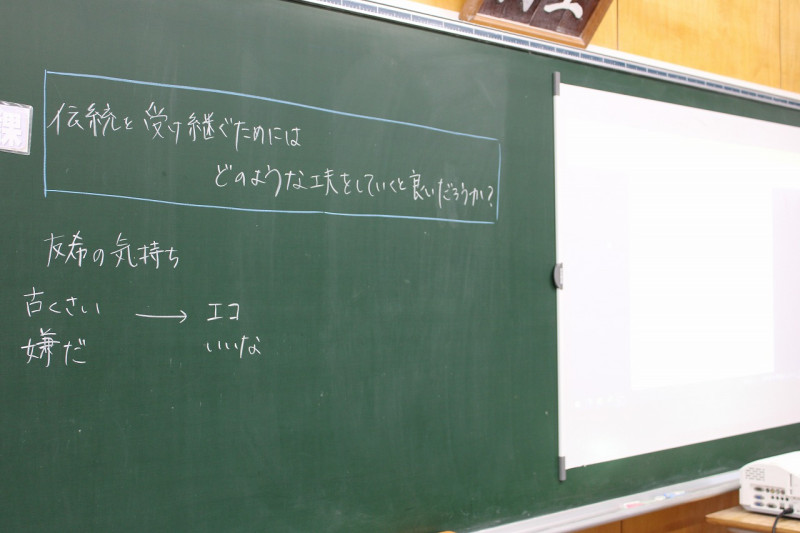 伝統を受け継ぐためには
どのような工夫をしていくと良いだろうか?
友希の気持ち
古くさい → エコ
嫌だ いいな